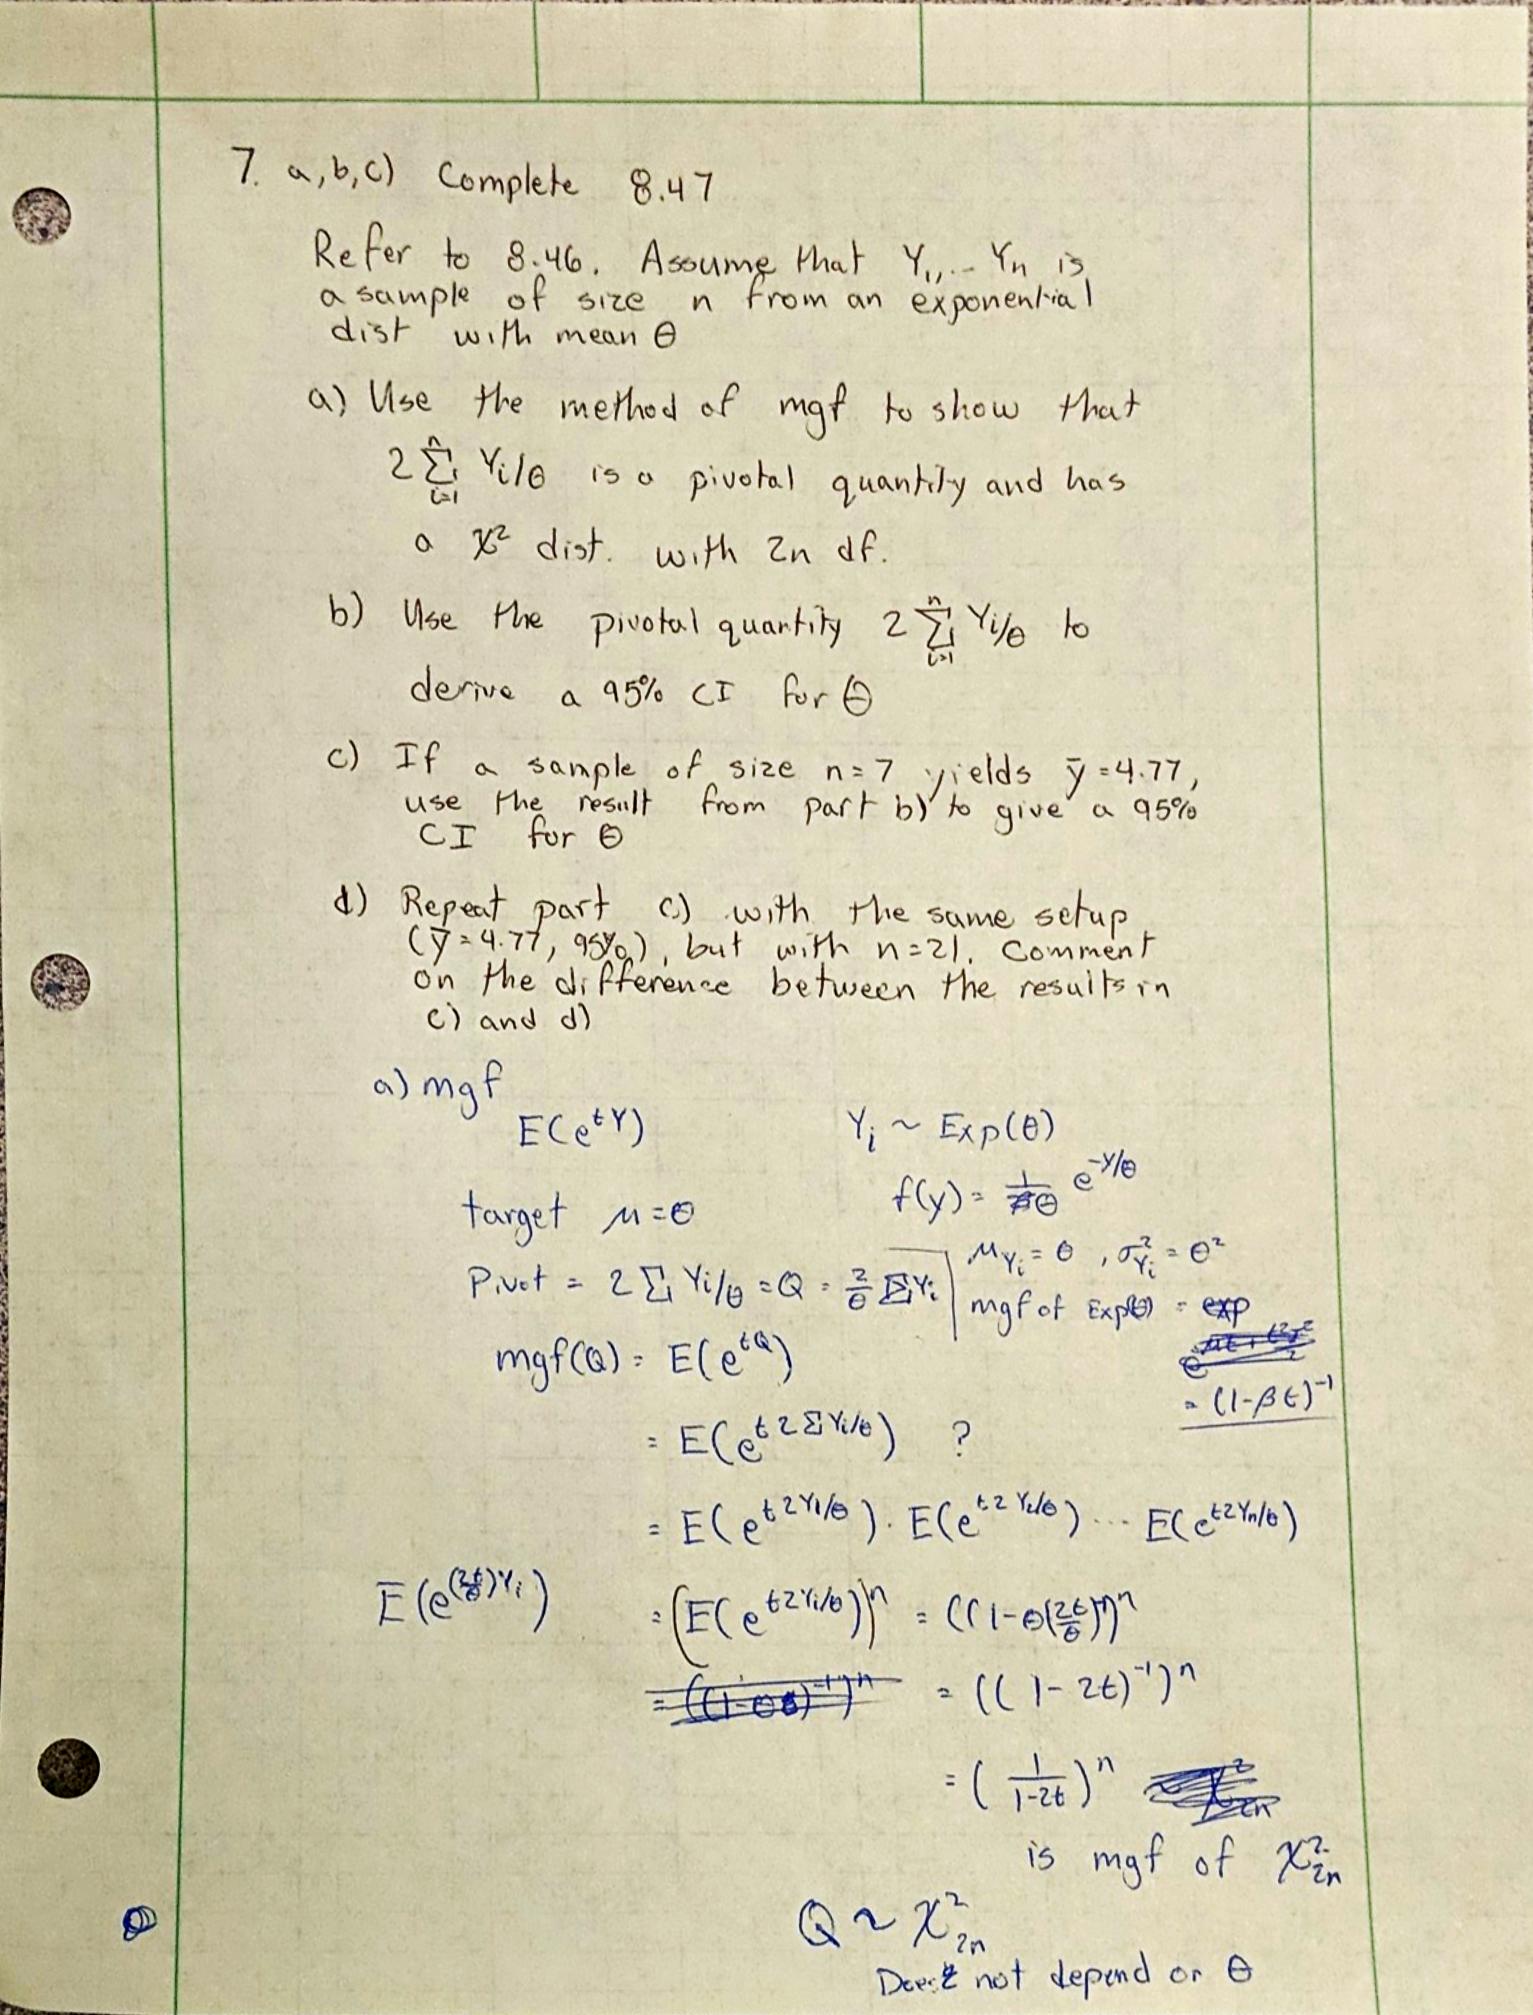 7. a,b,c) Complete 8.47
Refer to 8.46. Assume that Y₁,... Yₙ is
a sample of size n from an exponential
dist with mean θ
a) Use the method of mgf to show that
2 Σⁿᵢ₌₁ Yi/θ is a pivotal quantity and has
a χ² dist. with 2n df.
b) Use the pivotal quantity 2 Σⁿᵢ₌₁ Yi/θ to
derive a 95% CI for θ
c) If a sample of size n=7 yields ȳ=4.77,
use the result from part b) to give a 95%
CI for θ
d) Repeat part c) with the same setup
(ȳ=4.77, 95%), but with n=21. Comment
on the difference between the results in
c) and d)
a) mgf
E(e^{tY})
Yᵢ ~ Exp(θ)
f(y) = 1/θ e^{-y/θ}
target μ=θ
μ_{Yᵢ} = θ, σ²_{Yᵢ} = θ²
Pivot = 2 Σ Yi/θ = Q = 2/θ ΣYi
mgf of Exp(θ) = exp
= (1-βt)⁻¹
mgf(Q) = E(e^{tQ})
= E(e^{t2ΣYi/θ}) ?
= E(e^{t2Y1/θ}) · E(e^{t2Y2/θ}) ... E(e^{t2Yn/θ})
E(e^{(2t/θ)Yi})
= (E(e^{t2Yi/θ}))ⁿ = ((1-θ(2t/θ))⁻¹)ⁿ
= ((1-θt)⁻¹)ⁿ = ((1-2t)⁻¹)ⁿ
= (1/(1-2t))ⁿ ~ χ²₂ₙ
is mgf of χ²₂ₙ
Q ~ χ²₂ₙ
Does not depend on θ